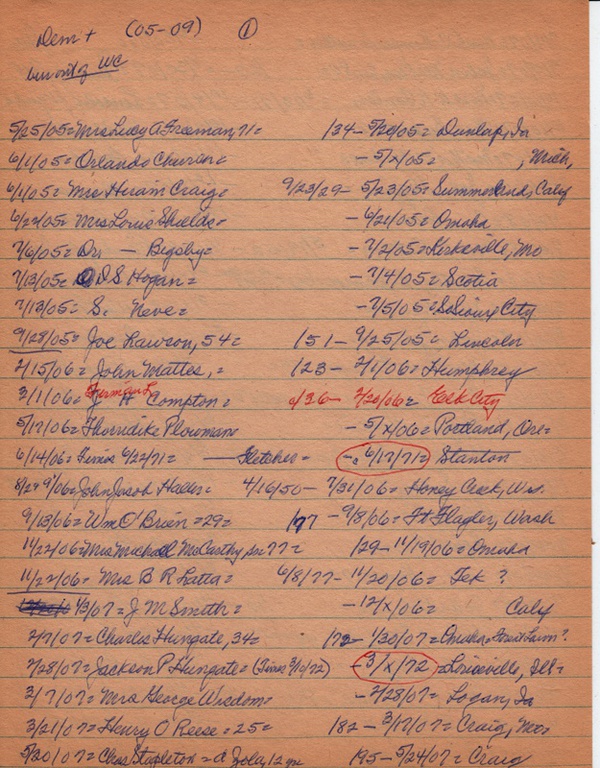 Dem + (05-09) ①
out of WC
5/25/05= Mrs Lucy A Freeman, 71= 134- 5/20/05= Dunlap, Ia
6/1/05= Orlando = -5/x/05= , Mich,
6/1/05= Mrs Hiram Craig= 9/23/29- 5/23/05= Summerlands, Caly
6/22/05= Mrs Louis Shields= -6/21/05= Omaha
7/6/05= Dr. — Bigsby= -7/2/05= Kirksville, Mo
7/13/05= D S Hogan= -7/4/05= Scotia
7/13/05= S. Neve= -7/5/05= So Sioux City
9/28/05= Joe Lawson, 54= 151- 9/25/05= Lincoln
2/15/06= John Mattes,= 123- 2/1/06= Humphrey
3/1/06= J H Compton= 2/20/06= Elk City
5/17/06= Thorndike Plowman= -5/x/06= Portland, Ore=
6/14/06= Times 6/22/71= — Fletcher= - 6/17/71= Stanton
8/29 9/06= John Jacob Haller= 4/16/50- 7/31/06= Honey Creek, Wis.
9/13/06= Wm O'Brien=29= 197 -9/8/06= Ft Flagler, Wash
11/22/06= Mrs Michael McCarthy, sr=77= 129- 11/19/06= Omaha
11/22/06= Mrs B R Latta= 6/8/77- 11/20/06= Tek ?
1/3/07= J M Smith= -12/x/06= Caly
2/7/07= Charles Hungate, 34= 172- 1/30/07= Omaha=
2/28/07= Jackson P Hungate= (Times 3/10/72) -3/x/72= Louisville, Ills=
3/7/07= Mrs George Wisdom= -2/28/07= Logan, Ia
3/21/07= Henry O Reese=25= 182- 3/17/07= Craig, Mo=
5/30/07= Chas Stapleton= a Zola, 12 yrs 195- 5/24/07= Craig